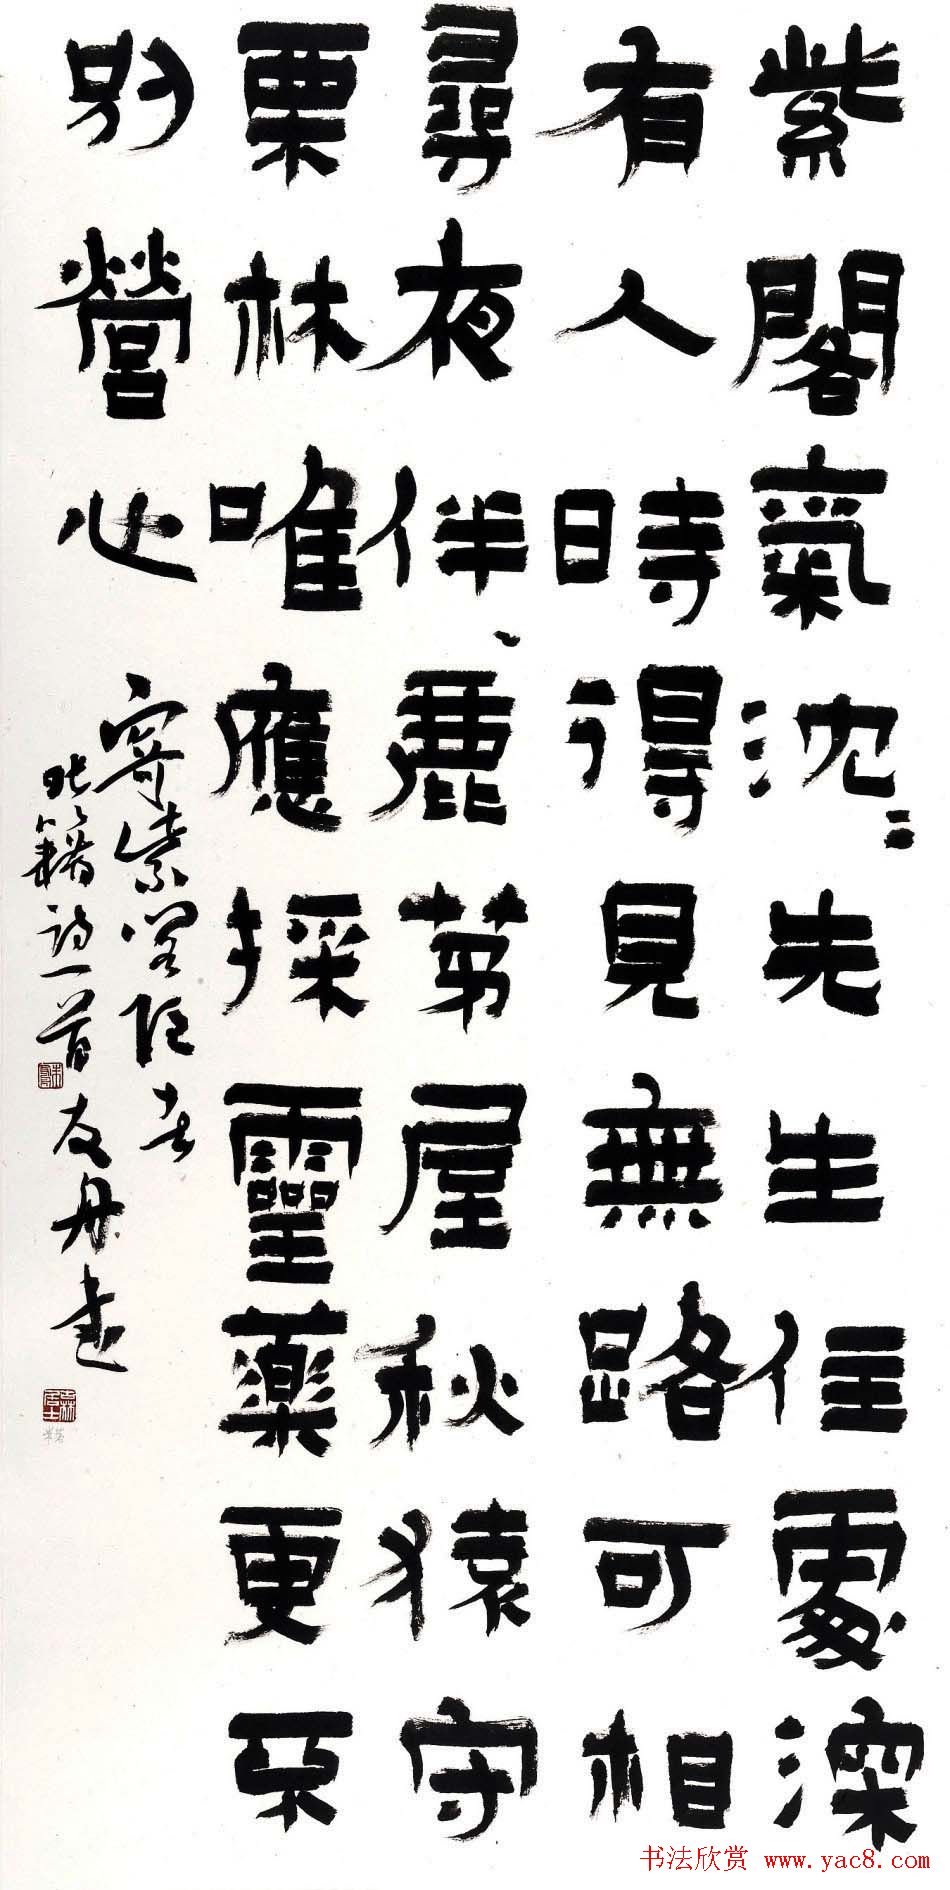 紫閣氣沈〻先生住處深
有人時得見無路可相
尋夜伴、鹿茅屋秋猿守
栗林唯應採靈藥更不
別營心
寄紫閣隱者
張籍詩一首友丹書
书法欣赏 www.yac8.com